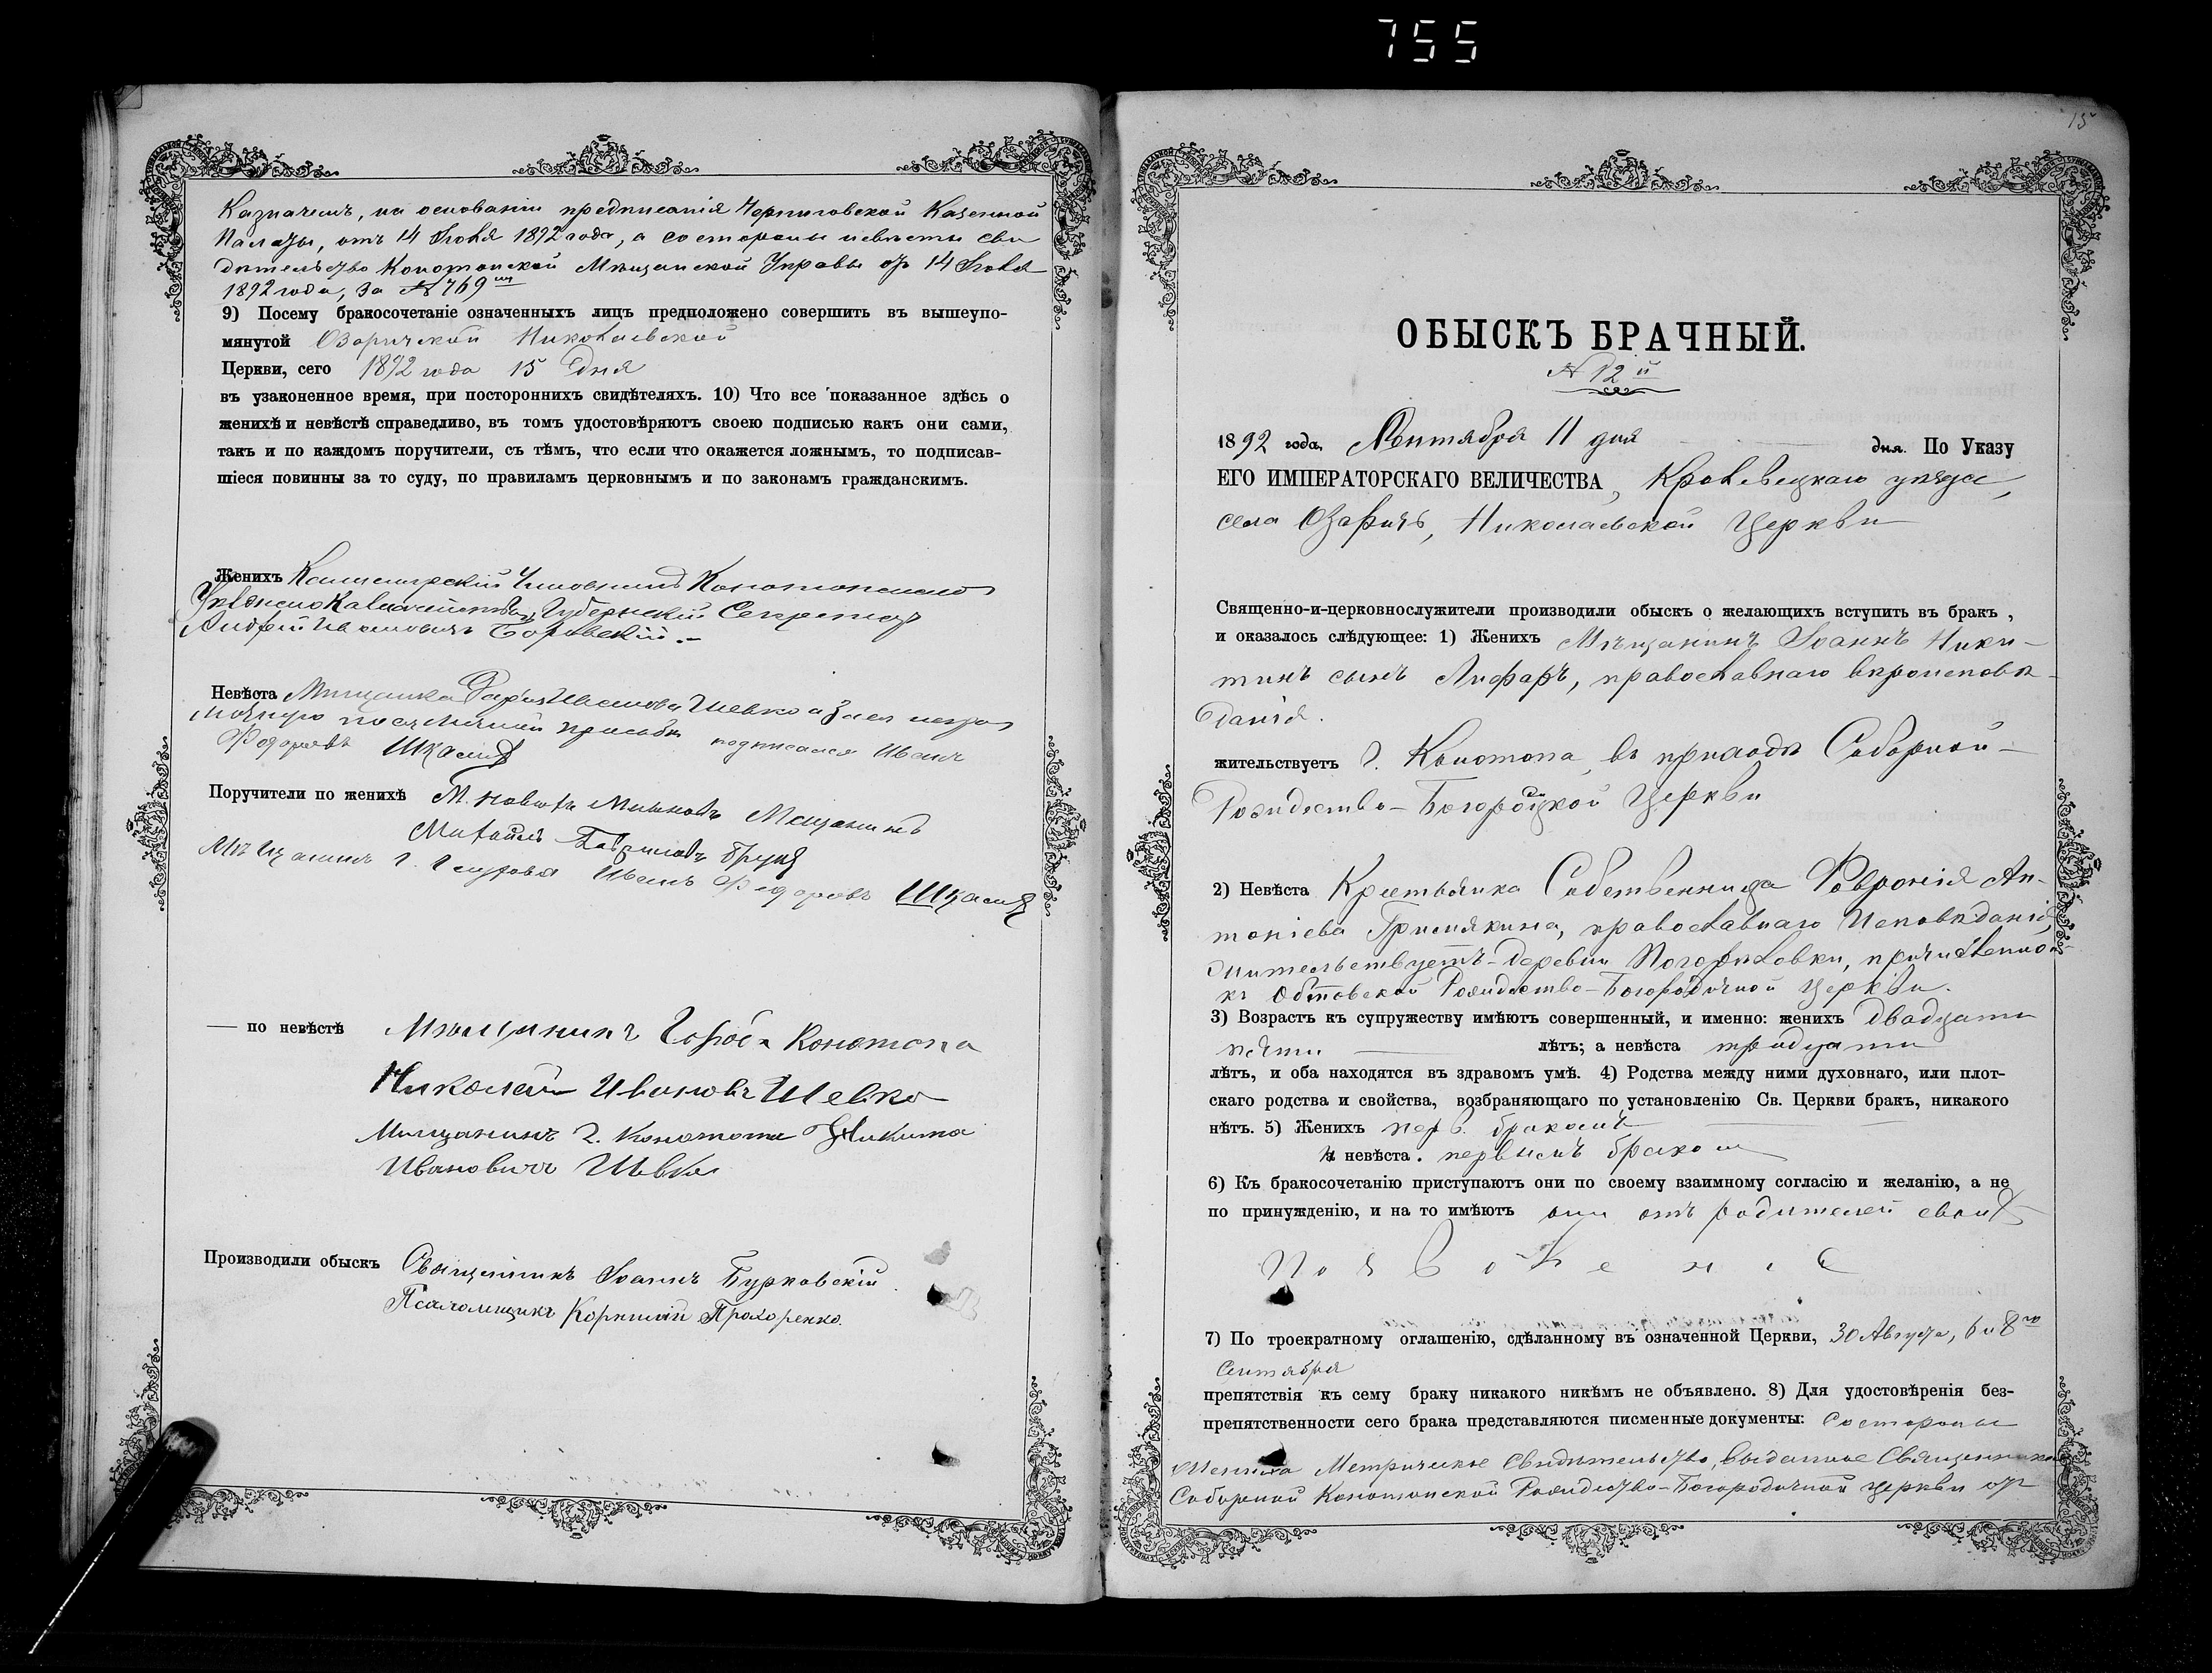 755
Казначемъ, на основаніи предписанія Черниговской Казенной
Палаты, отъ 14 Іюня 1892 года, а со стороны невѣсты сви
дѣтельство Конотопской Мѣщанской Управы отъ 14 Іюня
1892 года, за № 769
9) Посему бракосочетаніе означенныхъ лицъ предположено совершить въ вышеупо-
мянутой Озаричской Николаевской
Церкви, сего 1892 года 15 дня
въ узаконенное время, при постороннихъ свидѣтеляхъ. 10) Что все показанное здѣсь о
женихѣ и невѣстѣ справедливо, въ томъ удостовѣряютъ своею подписью какъ они сами,
такъ и по каждомъ поручители, съ тѣмъ, что если что окажется ложнымъ, то подписав-
шіеся повинны за то суду, по правиламъ церковнымъ и по законамъ гражданскимъ.
Женихъ Канцелярскій Чиновникъ Конотопскаго
Уѣзднаго Казначейства, Губернскій Секретарь
Андрей Ивановичъ Боровскій.
Невѣста Мѣщанка Ивановна Шевко а за нея негра
мотную по ея личной просьбѣ подписался Иванъ
Федоровъ
Поручители по женихѣ Мѣщанинъ
Михаилъ Гавриловъ
Мѣщанинъ г. Иванъ Федоровъ
— по невѣстѣ Мѣщанинъ Города Конотопа
Николай Ивановъ Шевко
Мѣщанинъ г. Конотопа Никита
Ивановичъ Шевко
Производили обыскъ Священникъ Іоаннъ Бурковскій.
Псаломщикъ Корнилій Прохоренко.
15
ОБЫСКЪ БРАЧНЫЙ.
№ 12й
1892 года, Сентября 11 дня дня. По Указу
ЕГО ИМПЕРАТОРСКАГО ВЕЛИЧЕСТВА, Кролевецкаго уѣзда,
села Озаричъ, Николаевской Церкви
Священно-и-церковнослужители производили обыскъ о желающихъ вступить въ бракъ,
и оказалось слѣдующее: 1) Женихъ Мѣщанинъ Іоаннъ Ники-
тинъ сынъ Лифарь, православнаго вѣроисповѣ-
данія.
жительствуетъ г. Конотопа, въ приходѣ Соборной—
Рождество-Богородицкой Церкви
2) Невѣста Крестьянка Собственница Февронія Ан-
тоніева православнаго Исповѣданія,
жительствуетъ деревни Погорѣловки, причисленной
къ Обтовской Рождество-Богородичной Церкви.
3) Возрастъ къ супружеству имѣютъ совершенный, и именно: женихъ двадцати
пяти лѣтъ; а невѣста тридцати
лѣтъ, и оба находятся въ здравомъ умѣ. 4) Родства между ними духовнаго, или плот-
скаго родства и свойства, возбраняющаго по установленію Св. Церкви бракъ, никакого
нѣтъ. 5) Женихъ перв. бракомъ
и невѣста. первымъ бракомъ
6) Къ бракосочетанію приступаютъ они по своему взаимному согласію и желанію, а не
по принужденію, и на то имѣютъ они отъ родителей своихъ
Позволеніе
7) По троекратному оглашенію, сдѣланному въ означенной Церкви, 30 Августа, 6 и 8го
Сентября
препятствія къ сему браку никакого никѣмъ не объявлено. 8) Для удостовѣренія без-
препятственности сего брака представляются писменные документы: Со стороны
Жениха Метрическое Свидѣтельство, выданное Священникомъ
Соборной Конотопской Рождество-Богородичной Церкви отъ